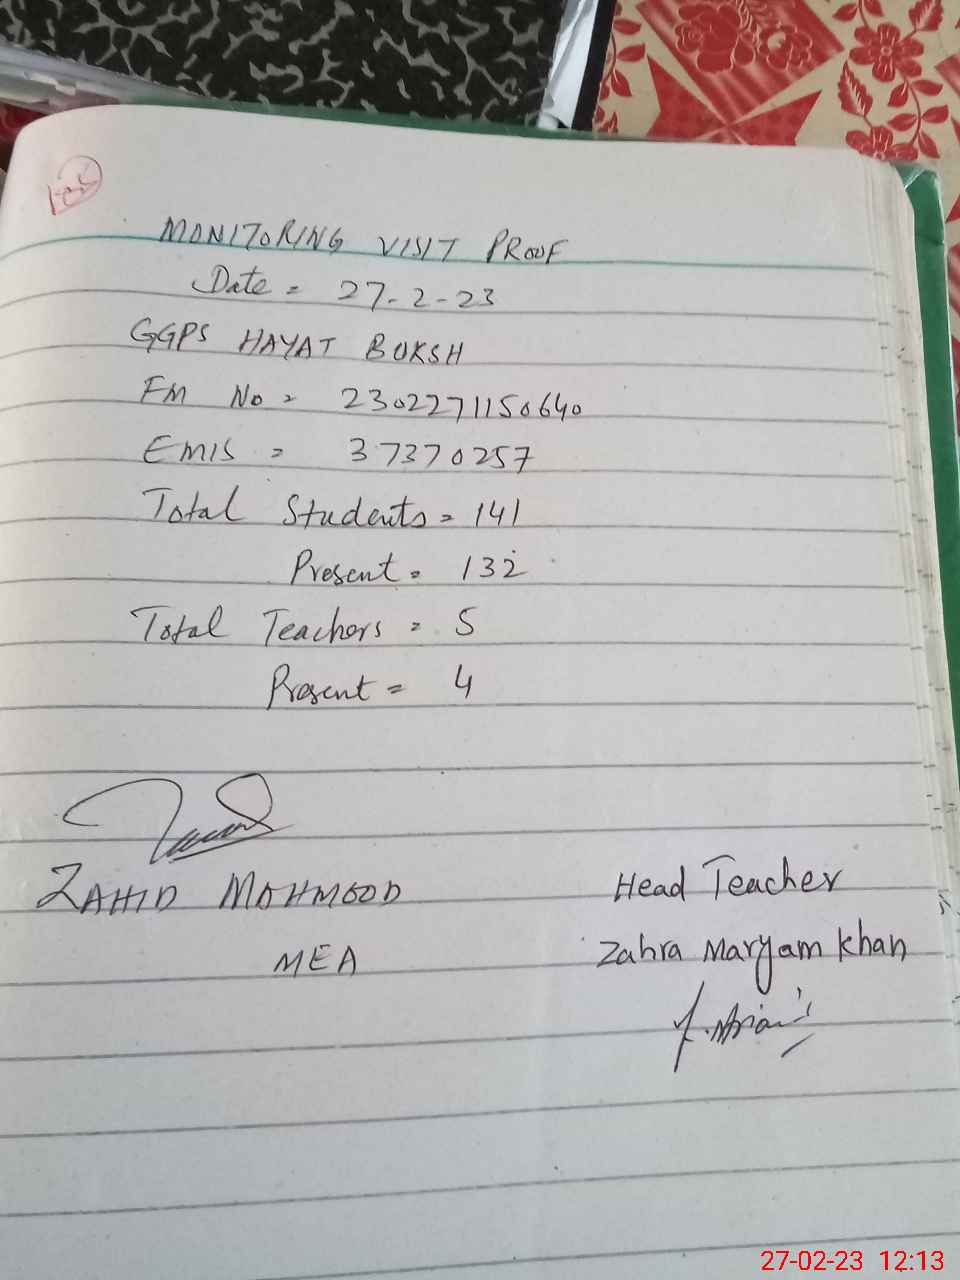 MONITORING VISIT PROOF
Date = 27-2-23
GGPS HAYAT BUKSH
FM No = 2302271150640
EMIS = 37370257
Total Students = 141
Present = 132
Total Teachers = 5
Present = 4
ZAHID MAHMOOD
MEA
Head Teacher
Zahra Maryam Khan
27-02-23 12:13